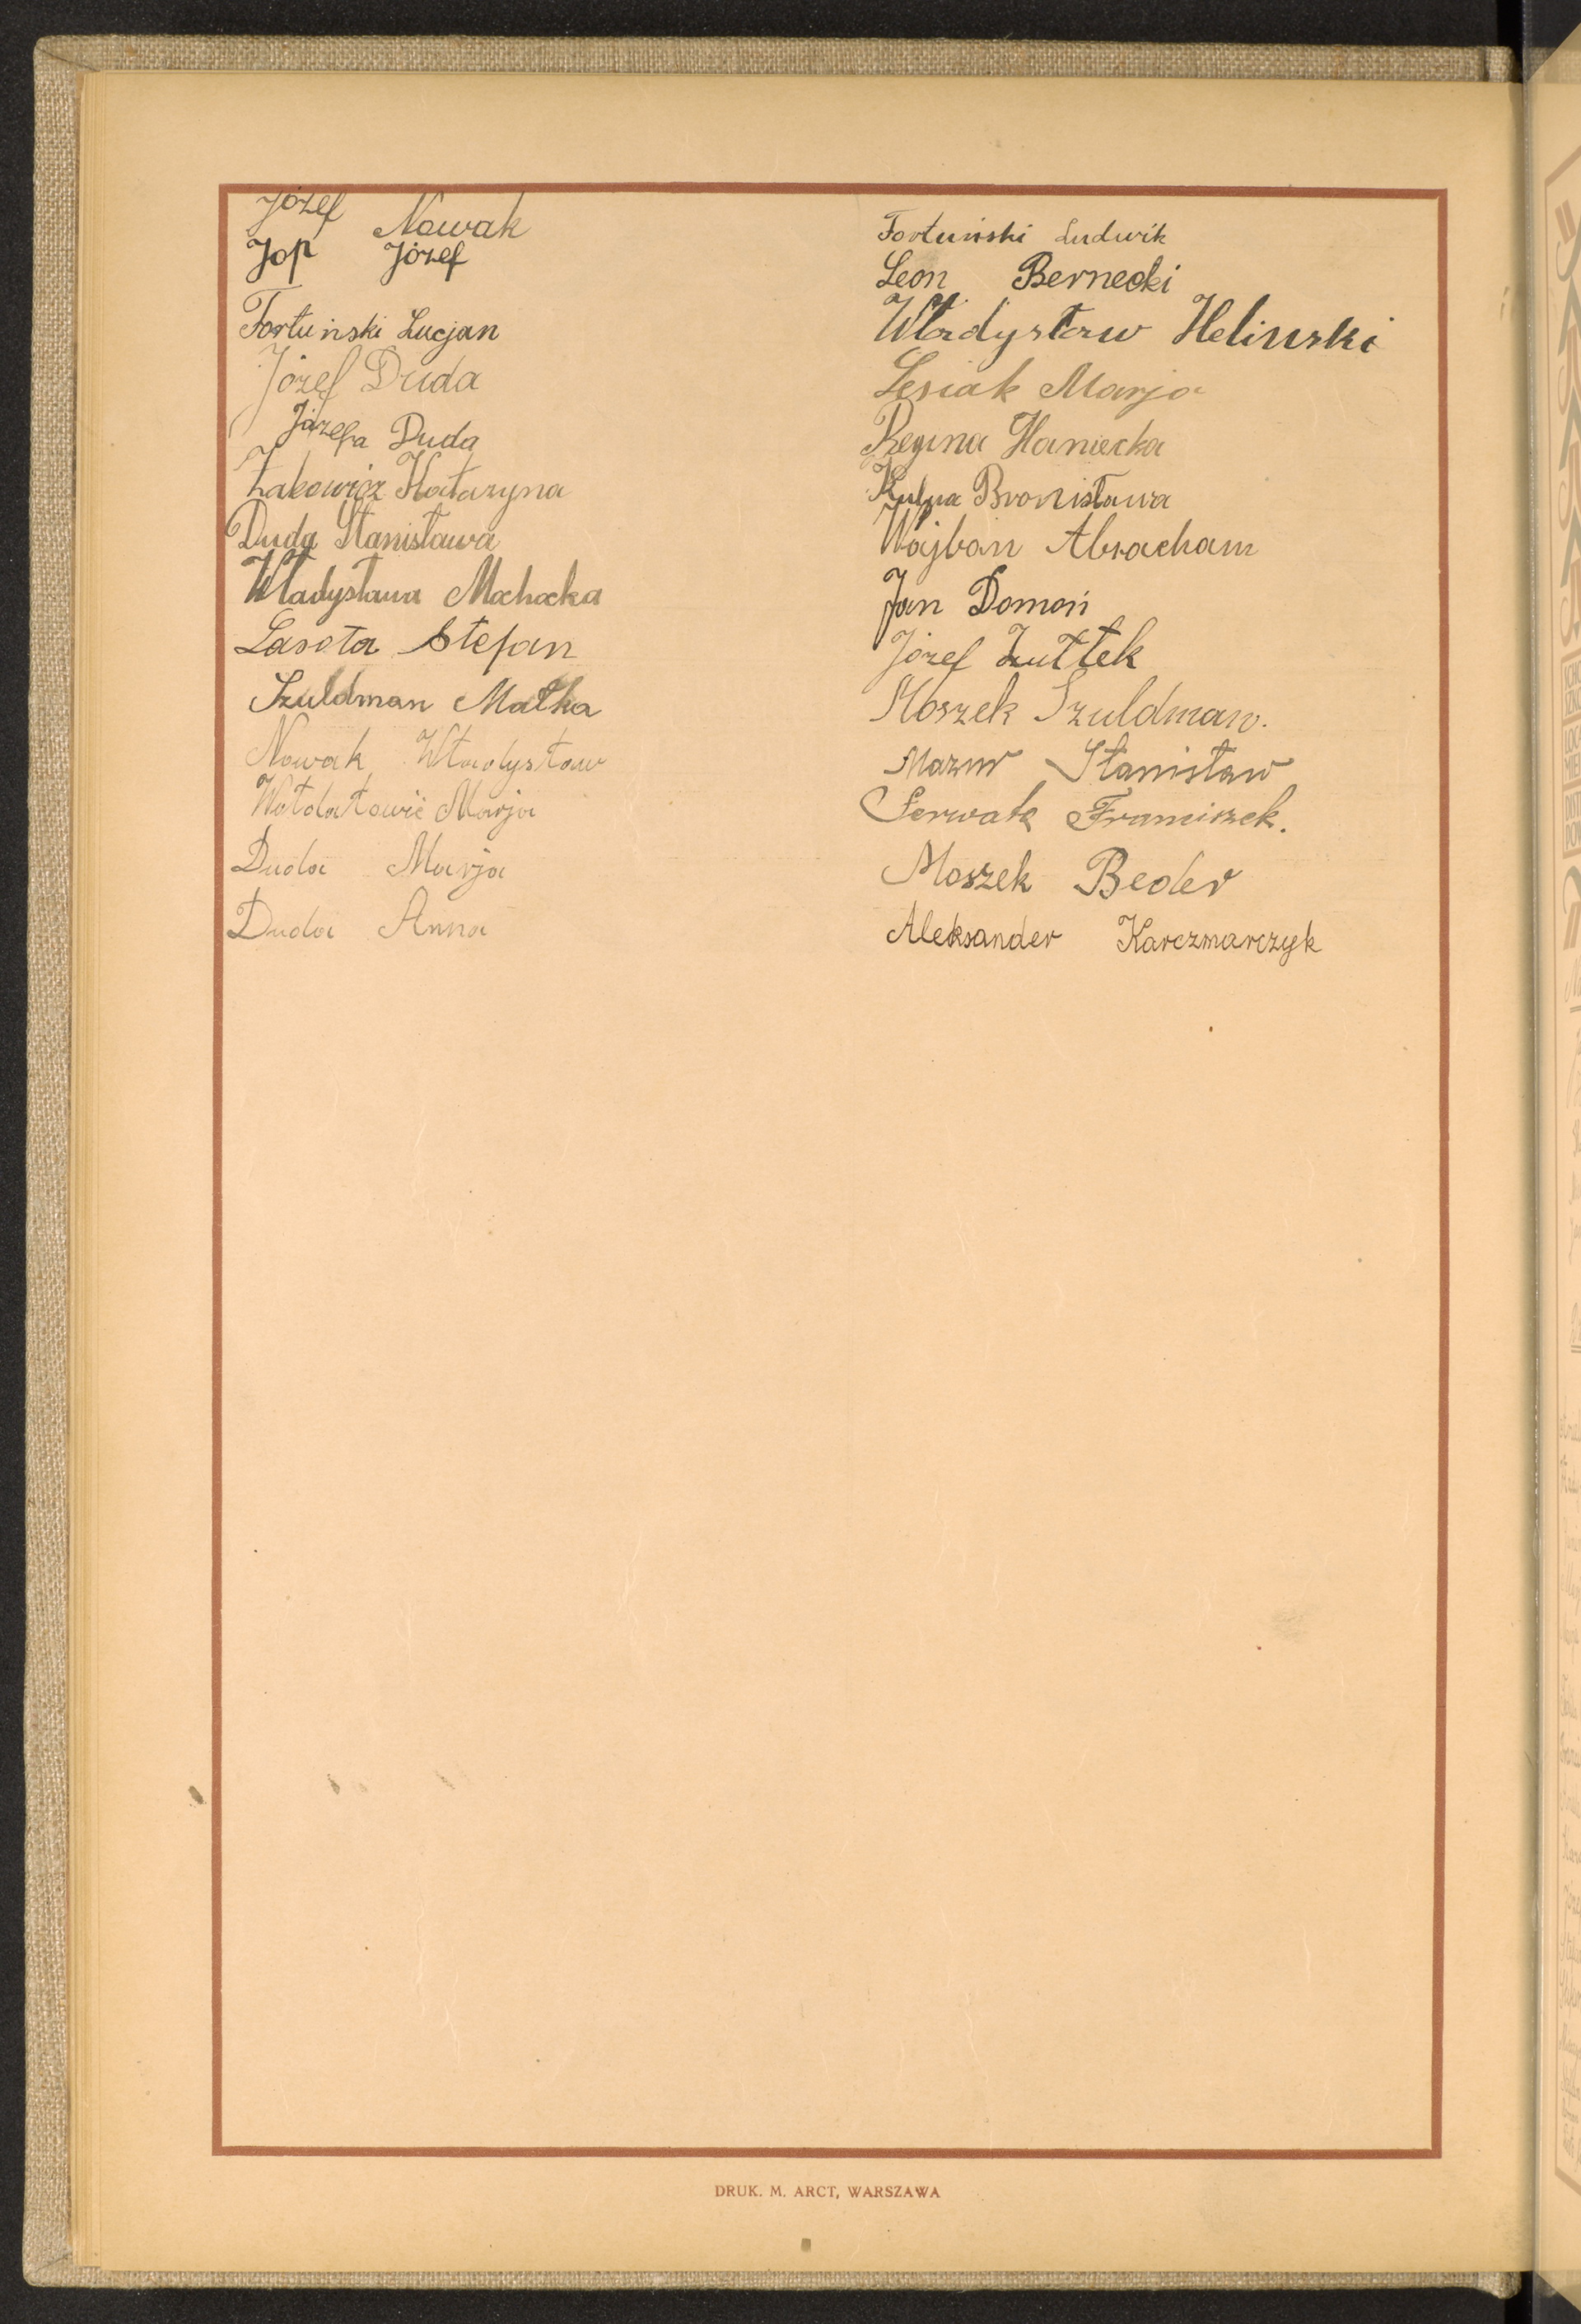 Józef Nowak
Jop Józef
Fortuński Lucjan
Józef Duda
Józefa Duda
Łakowicz Katarzyna
Duda Stanisława
Władysława Mochocka
Lasota Stefan
Szuldman Malka
Nowak Władysław
Marja
Duda Marja
Duda Anna
Fortuński Ludwik
Leon Bernecki
Władysław Helinski
Lesiak Marja
Regina Haniecka
Bronisława
Wajban Abracham
Jan Domoń
Józef
Moszek Szuldman.
Mazur Stanisław
Serwatk Franciszek.
Moszek Beder
Aleksander Karczmarczyk
DRUK. M. ARCT, WARSZAWA